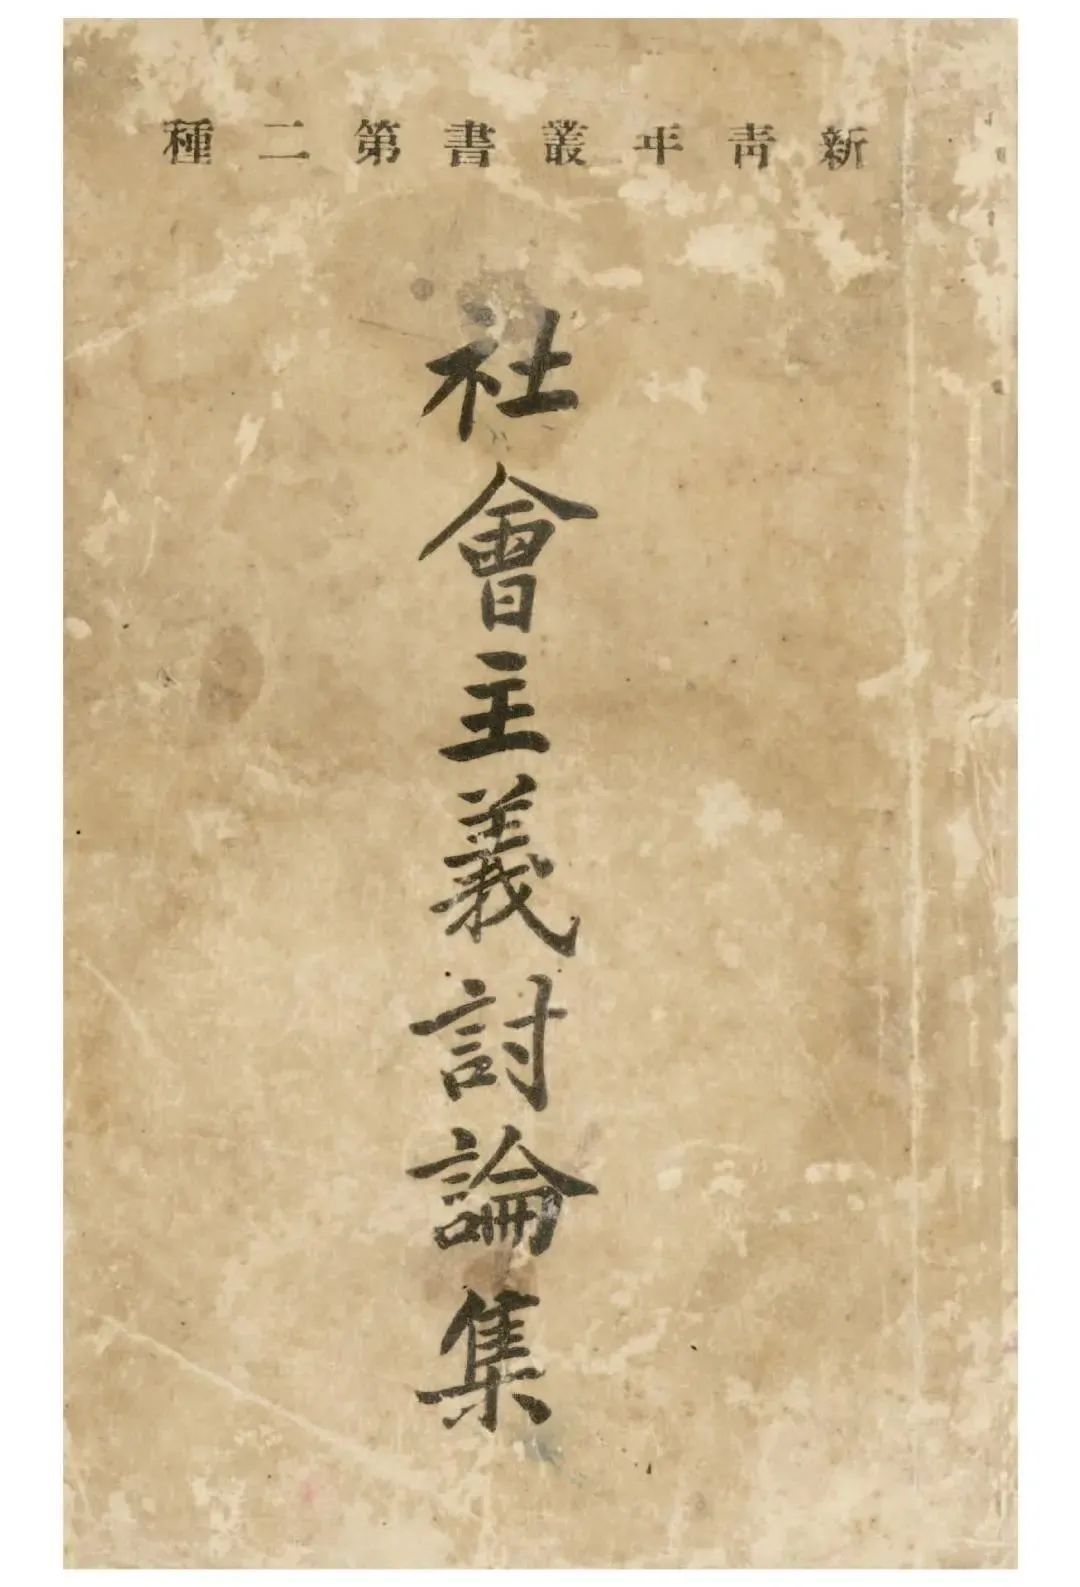 新青年叢書第二種
社會主義討論集